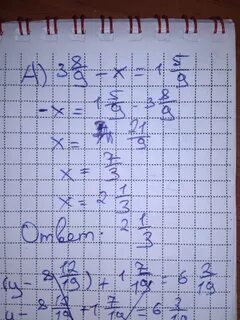 А) 3 8/9 - x = 1 5/9
-x = 1 5/9 - 3 8/9
x = 21/9
x = 7/3
x = 2 1/3
Ответ: 2 1/3
(y - 8 12/19) + 1 7/19 = 6 3/19
y - 8 12/19 + 1 7/19 = 6 3/19